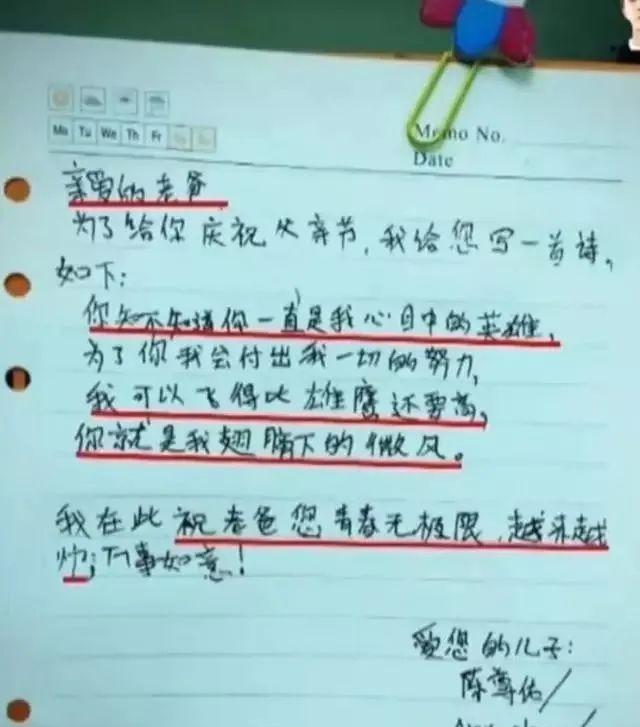 Mo Tu We Th Fr Sa Su
Memo No.
Date
亲爱的老爸
为了给你庆祝父亲节,我给您写一首诗,
如下:
你知不知道你一直是我心目中的英雄,
为了你我会付出我一切的努力,
我可以飞得比雄鹰还要高,
你就是我翅膀下的微风。
我在此祝老爸您青春无极限,越来越
帅;万事如意!
爱您的儿子:
陈尊佑/